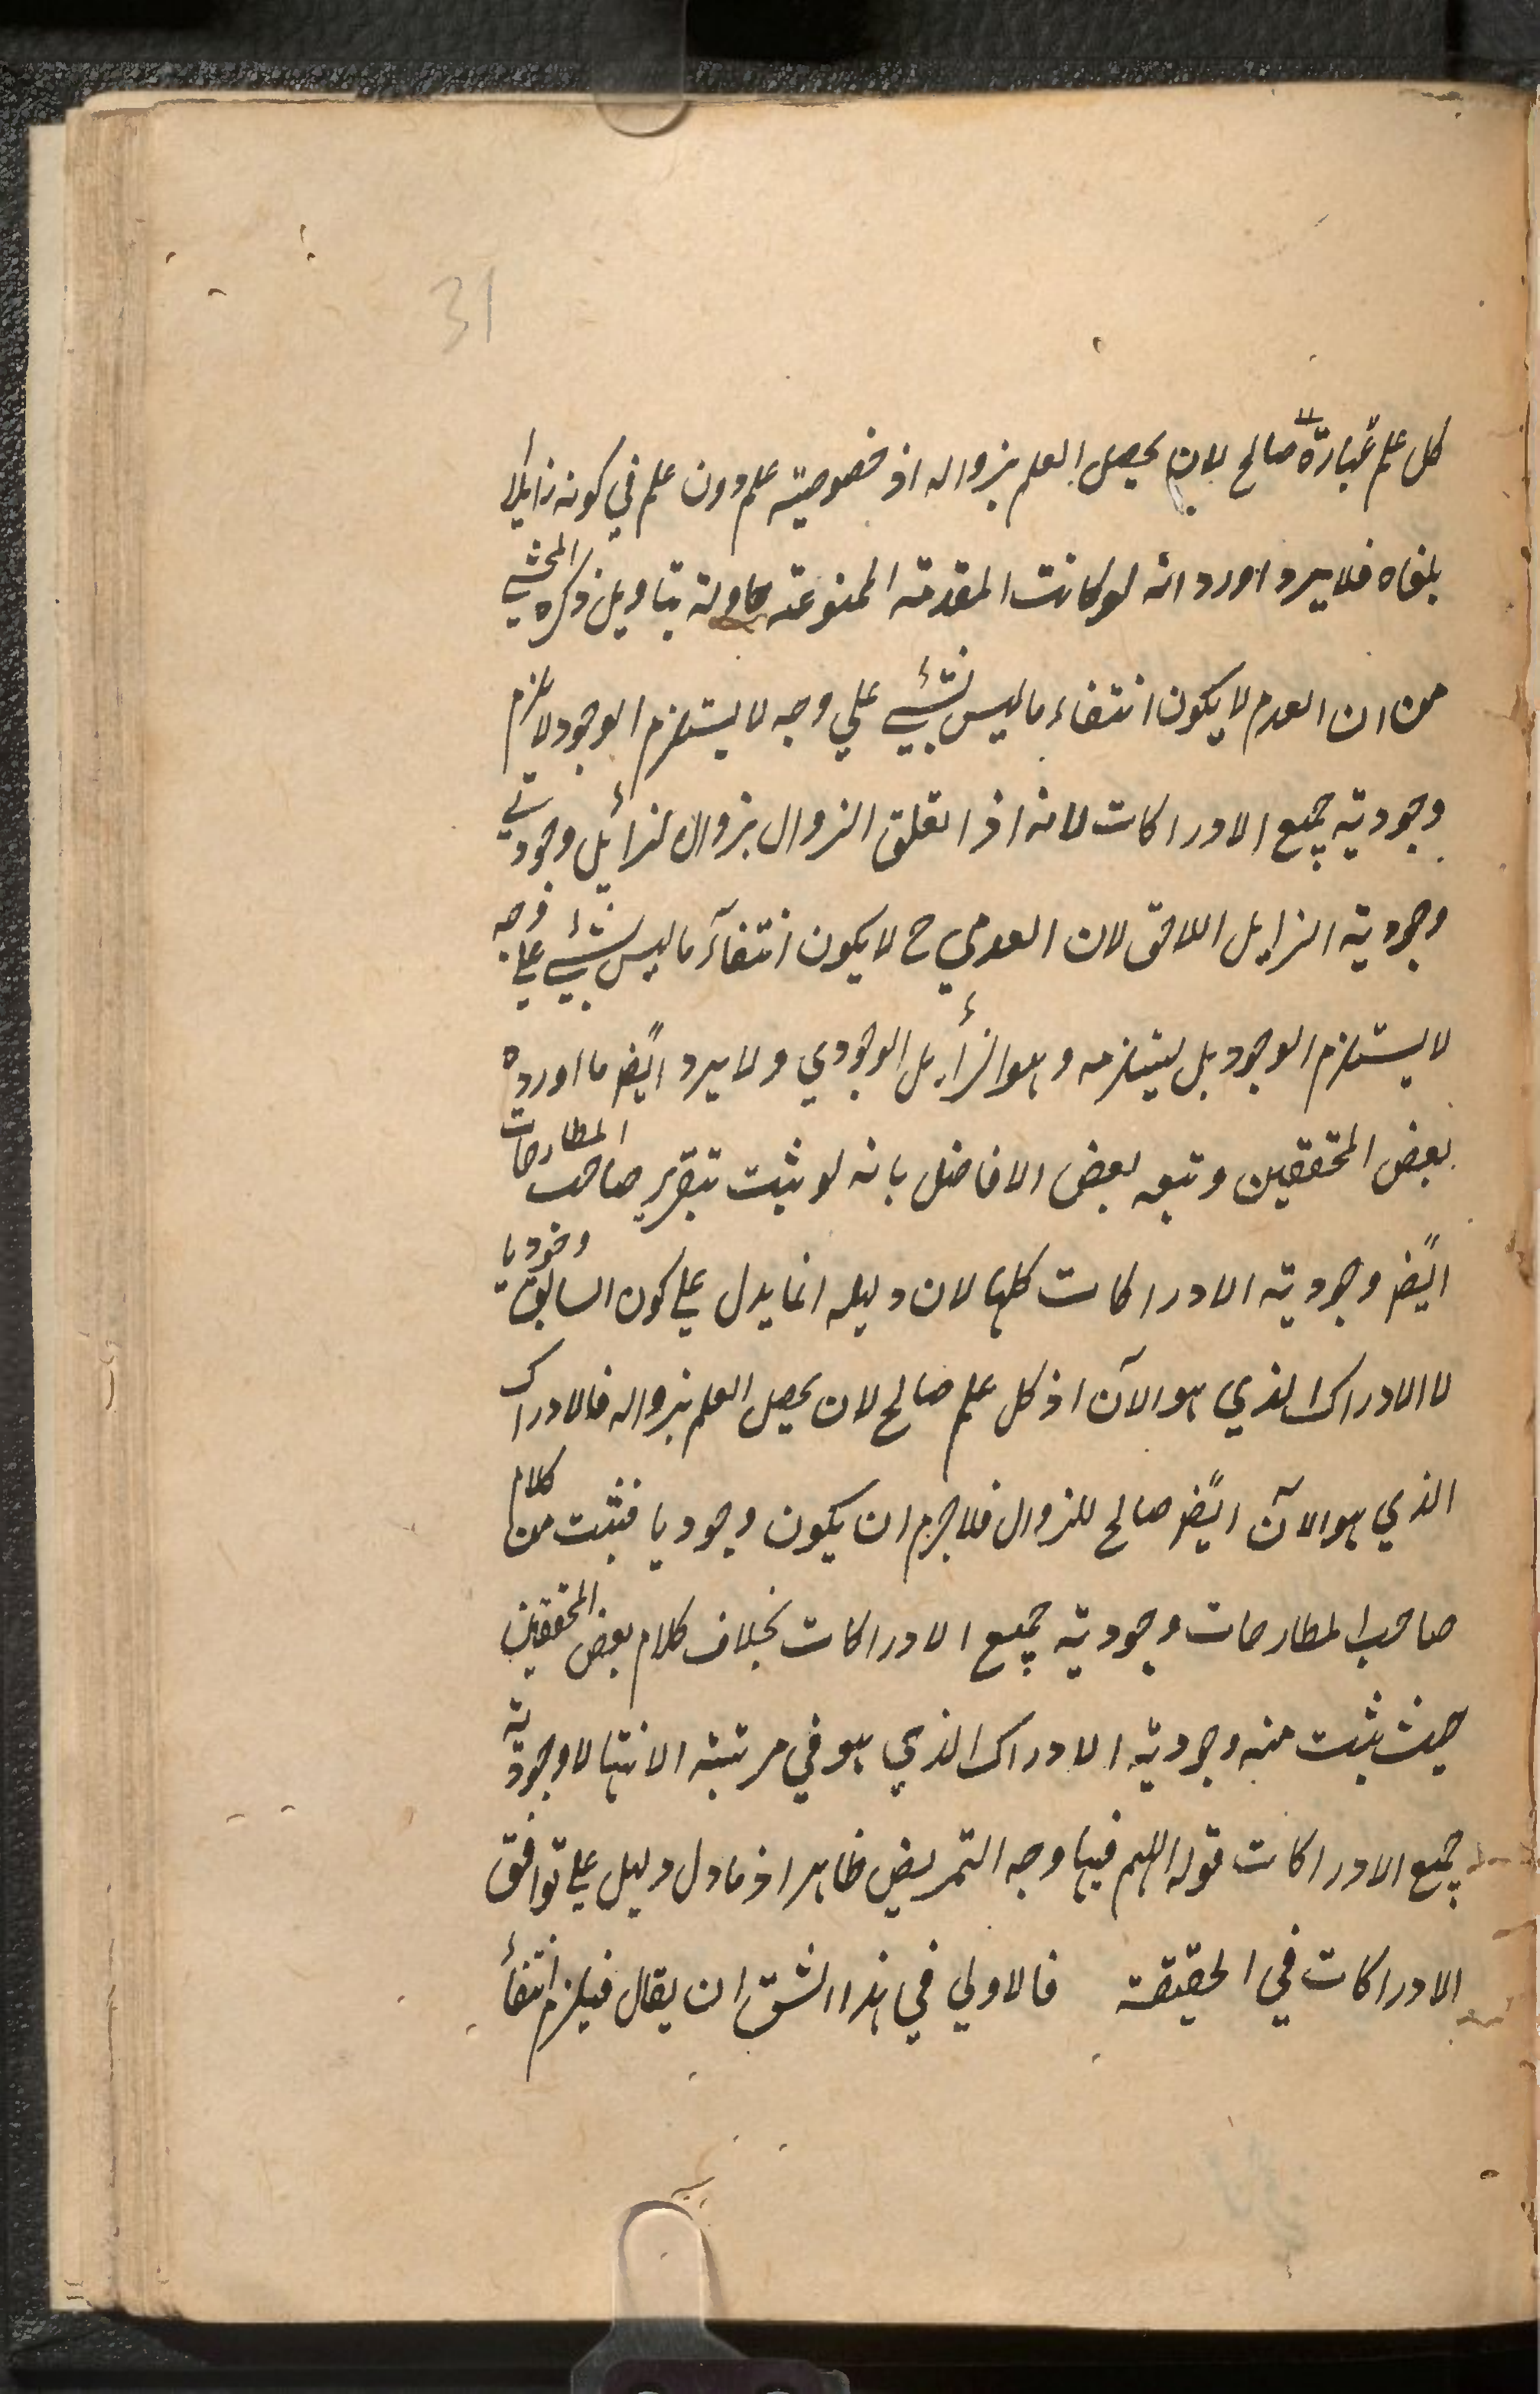 31
كل علم عبارة صالح لان يحصل العلم بزواله اذ خصوصية علم دون علم في كونه زايلا
بلغاه فلا يرد اورد انه لو كانت المقدمة الممنوعة ماولة بتاويل ذكره المحشي
من ان العدم لا يكون انتفاء ما ليس بشيء علي وجه لا يستلزم الوجود لا يلزم
وجودية جميع الادراكات لانه اذا تعلق الزوال بزوال لزائل وجود تي
وجودية الزايل اللاحق لان العدمي ح لا يكون انتفآء ما ليس بشيء علي وجه
لا يستلزم الوجود بل يستلزمه و هو الزأيل الوجودي ولا يرد ايضًا ما اورده
بعض المحققين و تبعه بعض الافاضل بانه لو ثبت بتقرير صاحب المطارحات
ايضًا وجودية الادراكات كلها لان دليله انما يدل علي كون السابق وجوديا
لا الادراك الذي هو الآن اذ كل علم صالح لان يحصل العلم بزواله فالادراك
الذي هو الآن ايضًا صالح للزوال فلا جرم ان يكون وجوديا فثبت من كلام
صاحب المطارحات وجودية جميع الادراكات بخلاف كلام بعض المحققين
حيث يثبت منه وجودية الادراك الذي هو في مرتبة الانتها لا وجودية
جميع الادراكات قوله اللهم فيها وجه التمريض ظاهر اذ ما دل دليل علي توافق
الادراكات في الحقيقة فالاولي في هذا الشق ان يقال فيلزم انتفأ